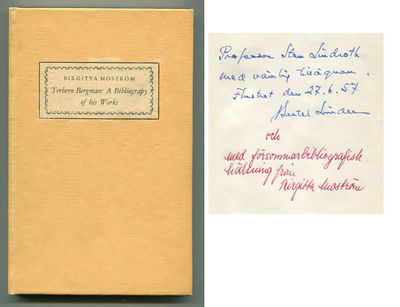 BIRGITTA MOSTRÖM
Torbern Bergman: A Bibliography
of his Works
Professor Sten Lindroth
med vänlig tillägnan.
Flustret den 27.6.57
och
med försommarbibliografisk
hälsning från
Birgitta Moström